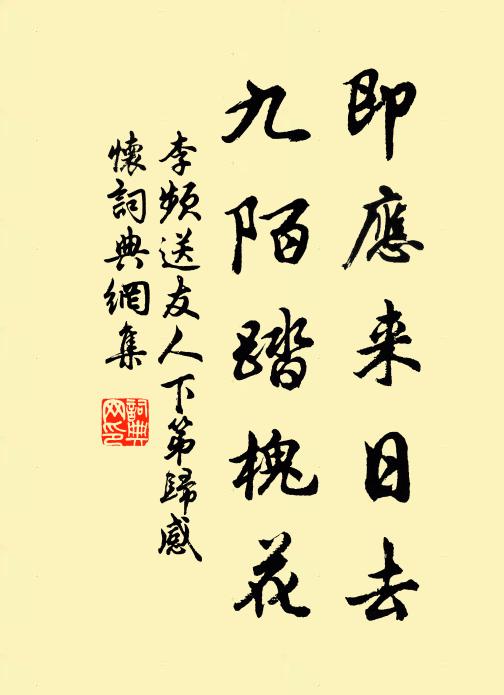 即應来日去
九陌踏槐花
李頻送友人下第歸感
懷詞典網集
詞典網印